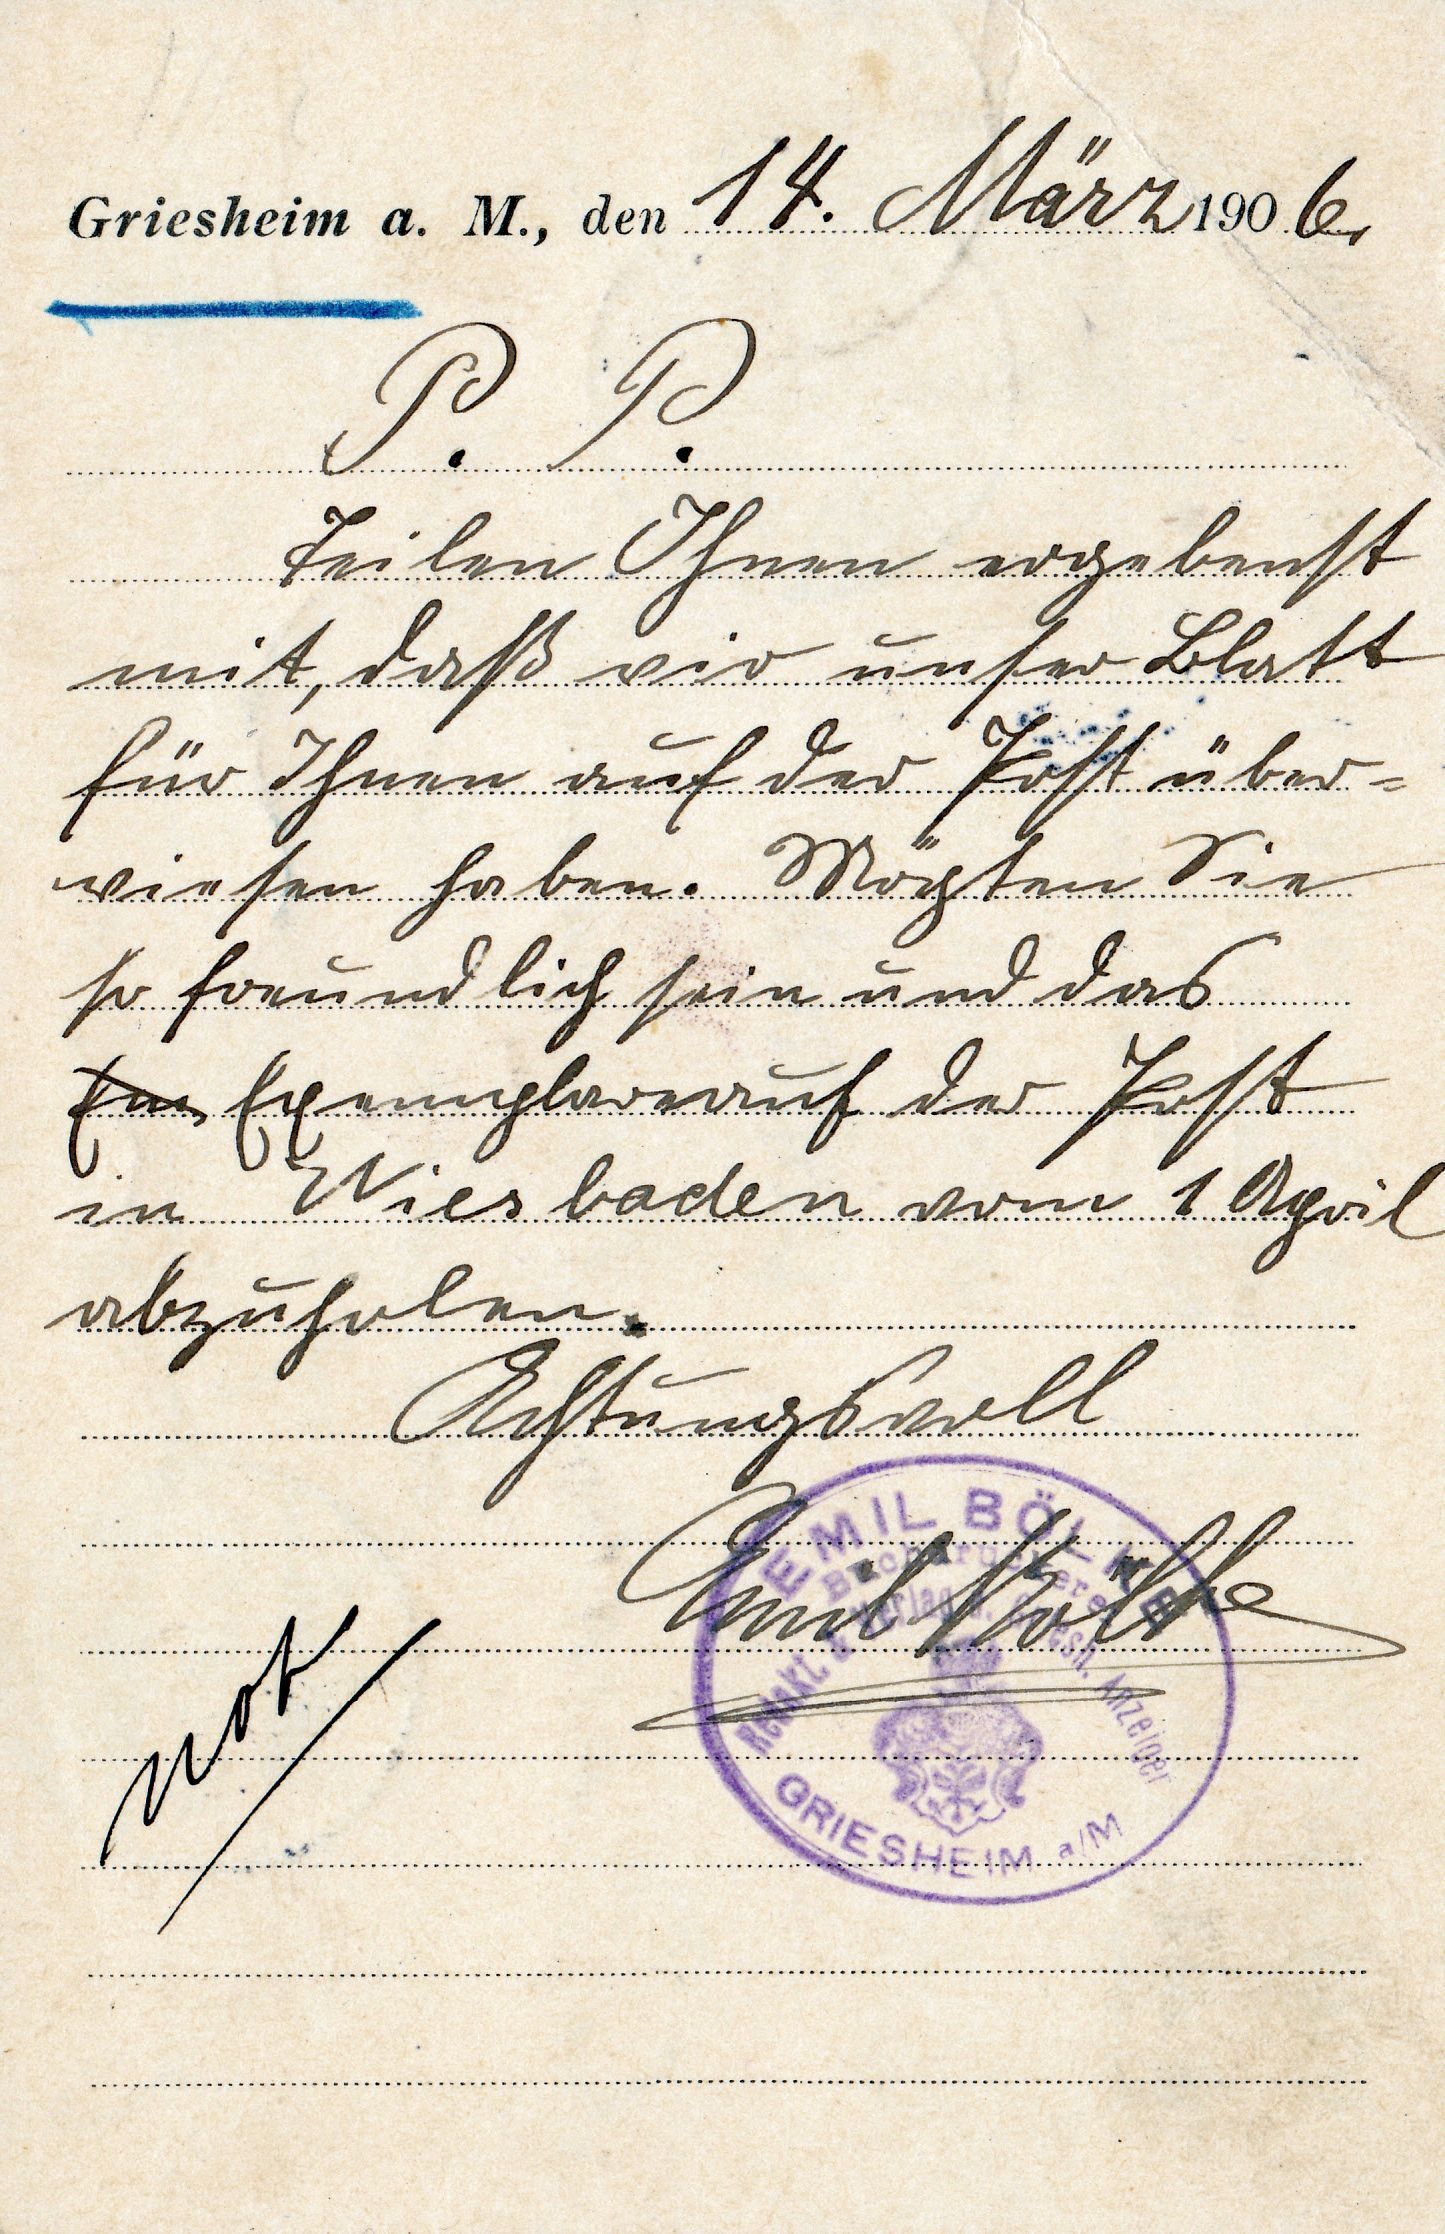 Griesheim a. M., den 14. März 1906.
P. P.
Teilen Ihnen ergebenst
mit, daß wir unser Blatt
für Ihnen auf der Post über=
wiesen haben. Mögten Sie
so freundlich sein und das
Exemplare auf der Post
in Wiesbaden vom 1 April
abzuholen.
Achtungsvoll
Emil Bölke
EMIL BÖLKE
Buchdruckerei
Redakt. u. Verlag d. Griesh. Anzeiger
GRIESHEIM a/M
not